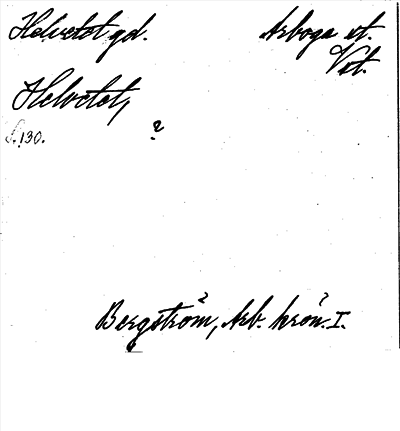 Helvetet gd. Arboga st.
Vstl.
Helvetet,
s. 130. ?
Bergström, Arb. krön. I.